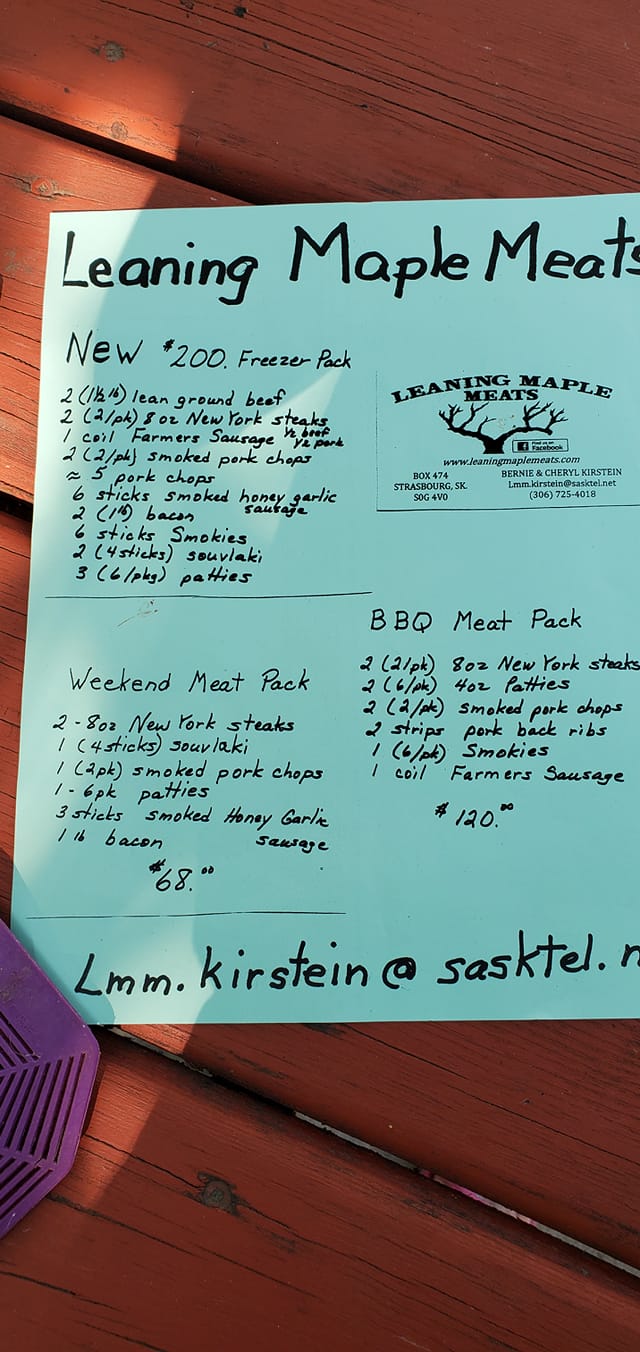 Leaning Maple Meats
New $200. Freezer Pack
2 (1½ lb) lean ground beef
2 (2/pk) 8oz New York steaks
1 coil Farmers Sausage ½ beef ½ pork
2 (2/pk) smoked pork chops
≈ 5 pork chops
6 sticks smoked honey garlic sausage
2 (1lb) bacon
6 sticks Smokies
2 (4sticks) souvlaki
3 (6/pkg) patties
LEANING MAPLE
MEATS
Find us on
Facebook
www.leaningmaplemeats.com
BOX 474
STRASBOURG, SK.
S0G 4V0
BERNIE & CHERYL KIRSTEIN
Lmm.kirstein@sasktel.net
(306) 725-4018
Weekend Meat Pack
2 - 8oz New York steaks
1 (4sticks) souvlaki
1 (2pk) smoked pork chops
1 - 6pk patties
3 sticks smoked Honey Garlic sausage
1 lb bacon
$68.00
BBQ Meat Pack
2 (2/pk) 8oz New York steaks
2 (6/pk) 4oz Patties
2 (2/pk) smoked pork chops
2 strips pork back ribs
1 (6/pk) Smokies
1 coil Farmers Sausage
$120.00
Lmm.kirstein@sasktel.n